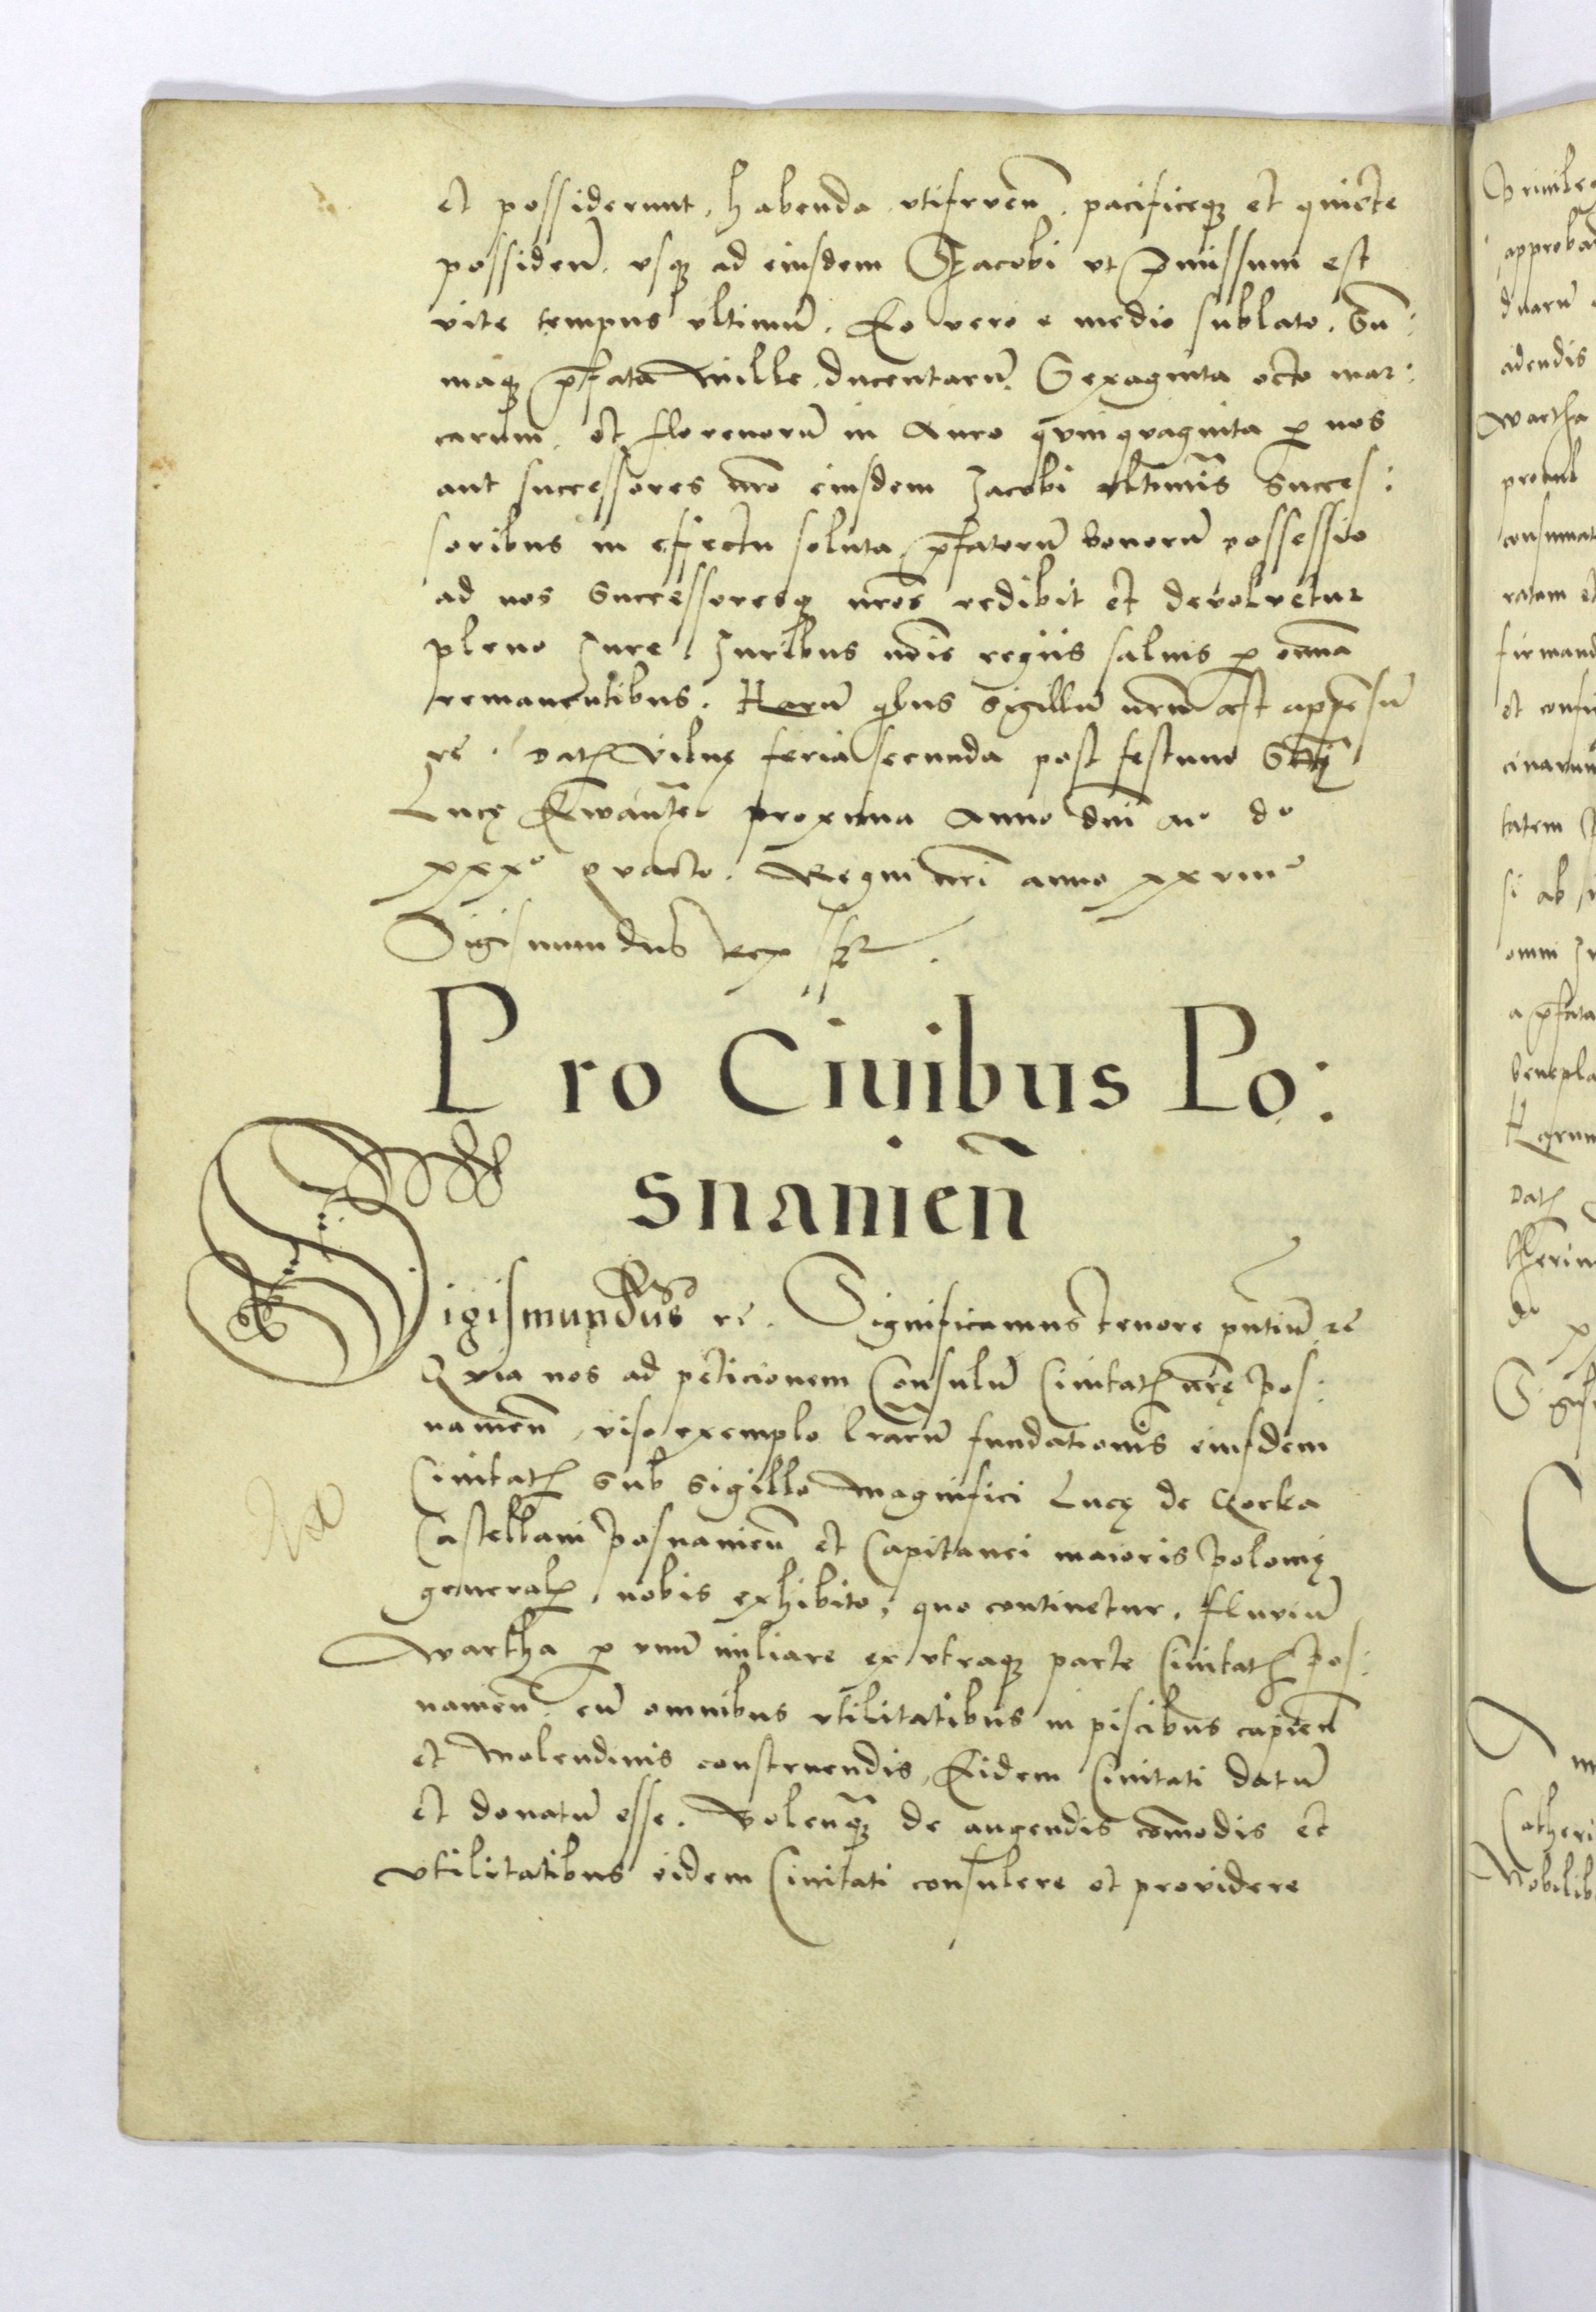 et possiderunt, habenda, vtifruen̄. pacificeqꝫ et quiete
possiden̄. vsqꝫ ad eiusdem Jacobi vt p̄missum est
vite tempus vltimū. Eo vero e medio sublato. Sū:
maqꝫ p̄fata Mille, ducentarū. Sexaginta octo mar:
carum, et florenorū in Auro qvinqvaginta ꝑ nos
aut successores nr̄o eiusdem Jacobi vltimis Succes:
soribus in effectu soluta, p̄fatorū bonorū possessio
ad nos Successoresqꝫ nr̄os redibit et devolvetur
pleno Jure, Juribus nr̄is regiis salvis ꝑ om̄ia
remanentibus. Harū qibus Sigillū nrm̄ est appēsū
rc̄. Datꝭ Vilnę feria secunda post festum Sctį
Lucę Ewantē proxima Anno dn̄i Mᵒ dᵒ
xxxᵒ qvarto. Regni nr̄i anno xxviiiᵒ
Sigismundus Rex sst.
Pro Ciuibus Po:
snanien̄
Sigismundus rc̄. Significamus tenore pn̄tiū rc̄
Qvia nos ad peticionem Consulū Ciuitatꝭ nr̄ę Pos:
nanien̄, viso exemplo lr̄arū fundationis eiusdem
Ciuitatꝭ sub sigillo Magnifici Lucę de Gorka
Castellani Posnanien̄ et Capitanei maioris Polonię
generalꝭ, nobis exhibito, quo continetur, fluviū
Wartha ꝑ vnū miliare ex vtraqꝫ parte Ciuitatꝭ Pos:
nanien̄. cū omnibus vtilitatibus in piscibus capien̄
et Molendinis construendis, Eidem Ciuitati datū
et donatū esse. Volen̄qꝫ de augendis com̄odis et
vtilitatibus eidem Ciuitati consulere et providere